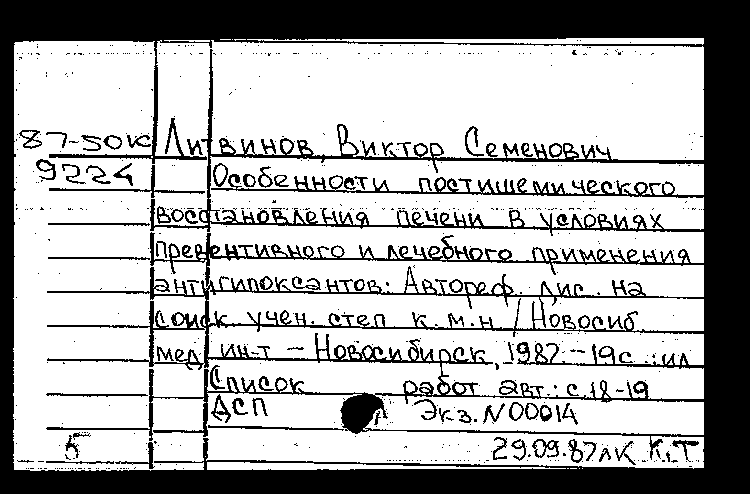 87-50к Литвинов, Виктор Семенович
9224 Особенности постишемического
восстановления печени в условиях
превентивного и лечебного применения
антигипоксантов: Автореф. дис. на
соиск. учен. степ к.м.н / Новосиб.
мед ин-т – Новосибирск, 1987. – 19с.: ил
Список работ авт.: с.18-19
ДСП Экз. N 00014
Б 29.09.87 лк К.Т